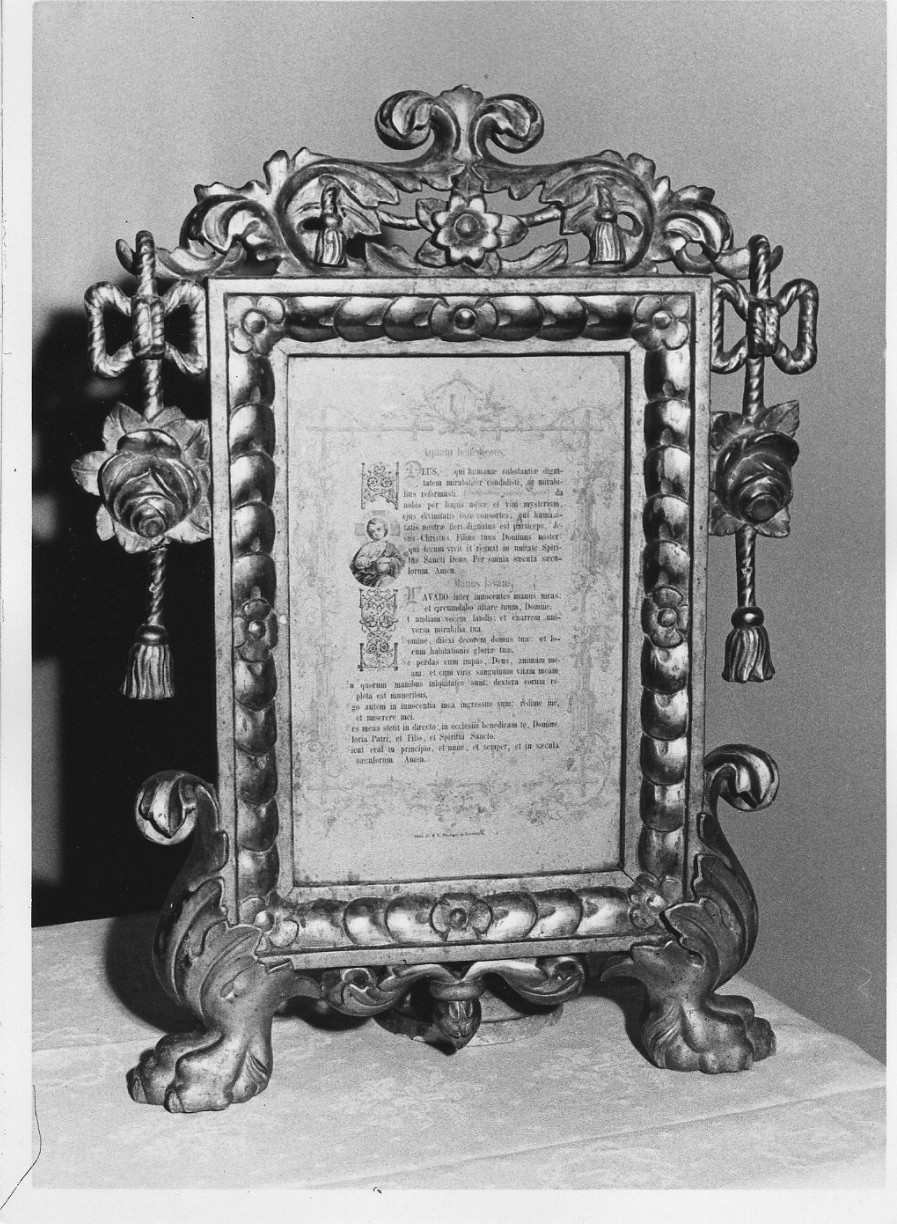 Aquam benedicens.
DEUS, qui humanæ substantiæ digni-
tatem mirabiliter condidisti, et mirabi-
lius reformasti. da
nobis per hujus aquæ et vini mysterium,
ejus divinitatis esse consortes, qui humani-
tatis nostræ fieri dignatus est particeps, Je-
sus Christus Filius tuus Dominus noster:
qui tecum vivit et regnat in unitate Spiri-
tus Sancti Deus. Per omnia sæcula sæcu-
lorum. Amen.
Manus lavans,
LAVABO inter innocentes manus meas:
et circumdabo altare tuum, Domine.
t audiam vocem laudis: et enarrem uni-
versa mirabilia tua.
omine, dilexi decorem domus tuæ: et lo-
cum habitationis gloriæ tuæ.
e perdas cum impiis, Deus, animam me-
am: et cum viris sanguinum vitam meam
n quorum manibus iniquitates sunt: dextera eorum re-
pleta est muneribus.
go autem in innocentia mea ingressus sum: redime me,
et miserere mei.
es meus stetit in directo: in ecclesiis benedicam te, Domine
loria Patri, et Filio, et Spiritui Sancto.
icut erat in principio, et nunc, et semper, et in sæcula
sæculorum. Amen.